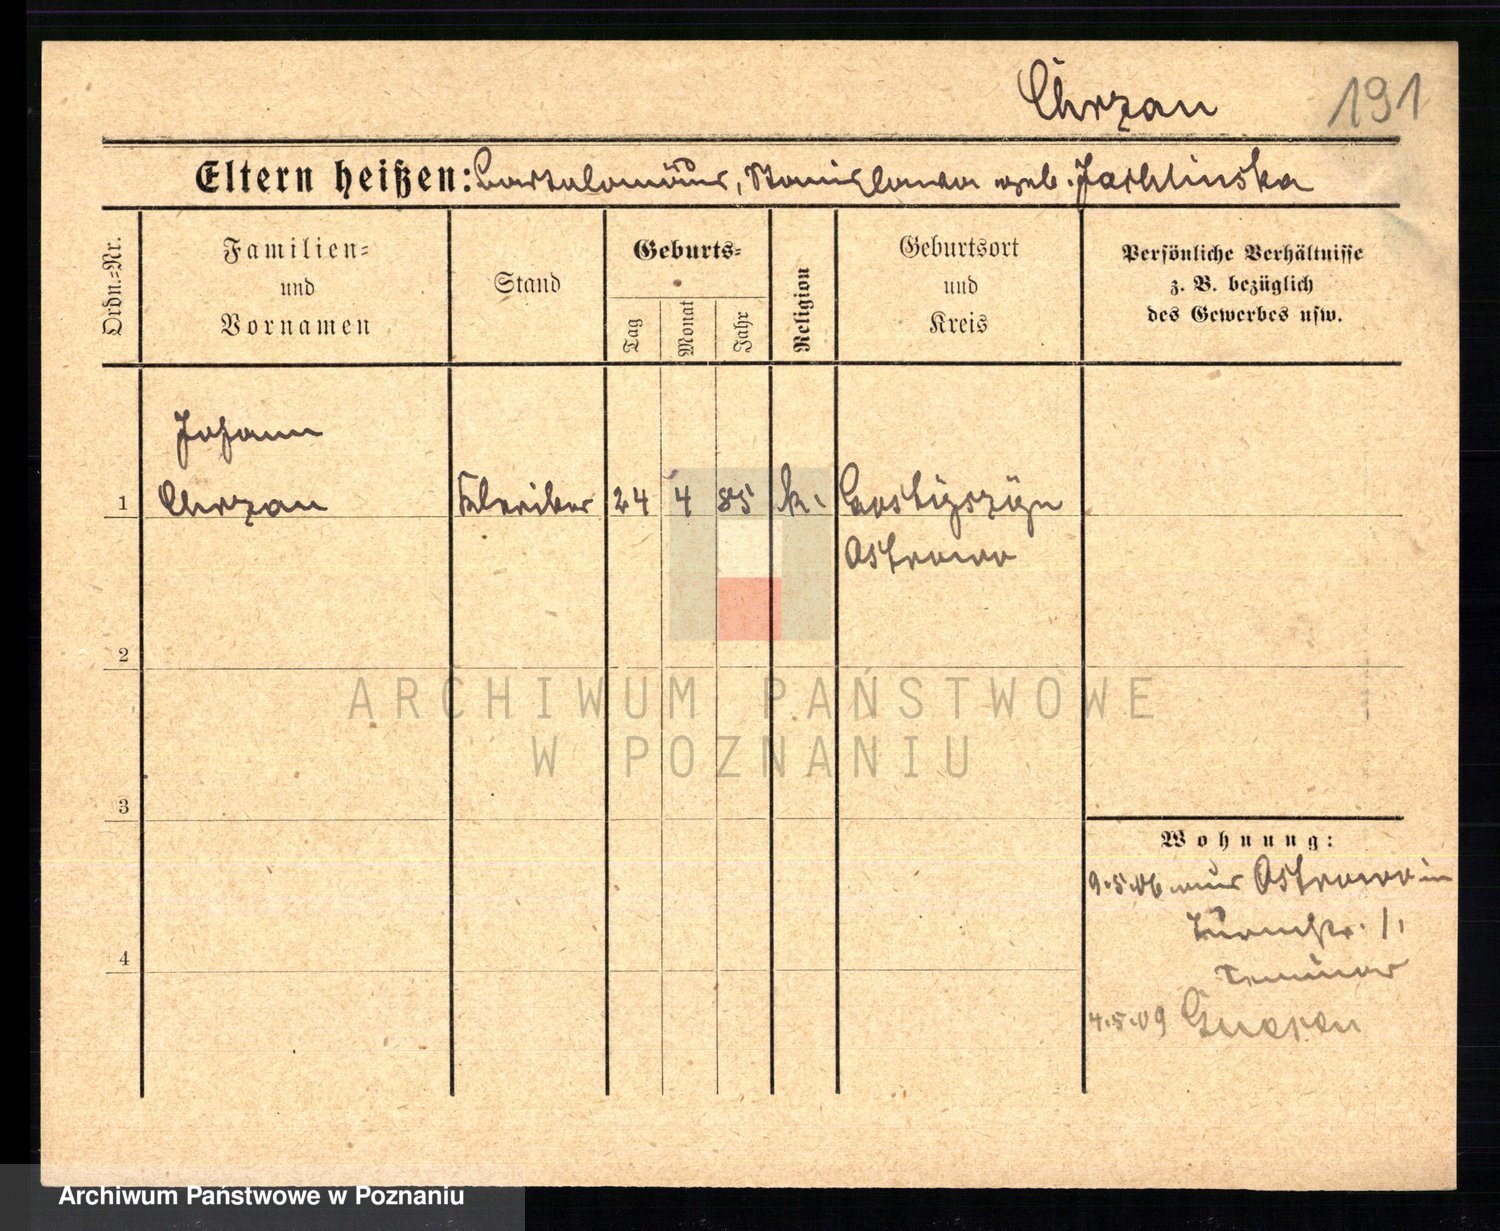 Chrzan 191
Eltern heißen: Bartolomäus, Stanislawa geb. Jachlinska
Ordn.-Nr.
Familien-
und
Vornamen
Stand
Geburts-
Tag
Monat
Jahr
Religion
Geburtsort
und
Kreis
Persönliche Verhältnisse
z. B. bezüglich
des Gewerbes usw.
Johann
1 Chrzan 24 4 85 k.
Ostrowo
2
3
4
Wohnung:
9.5.06 aus Ostrowo in
Turmstr. 1,
Seminar
4.5.09 Gnesen
ARCHIWUM PAŃSTWOWE
W POZNANIU
Archiwum Państwowe w Poznaniu